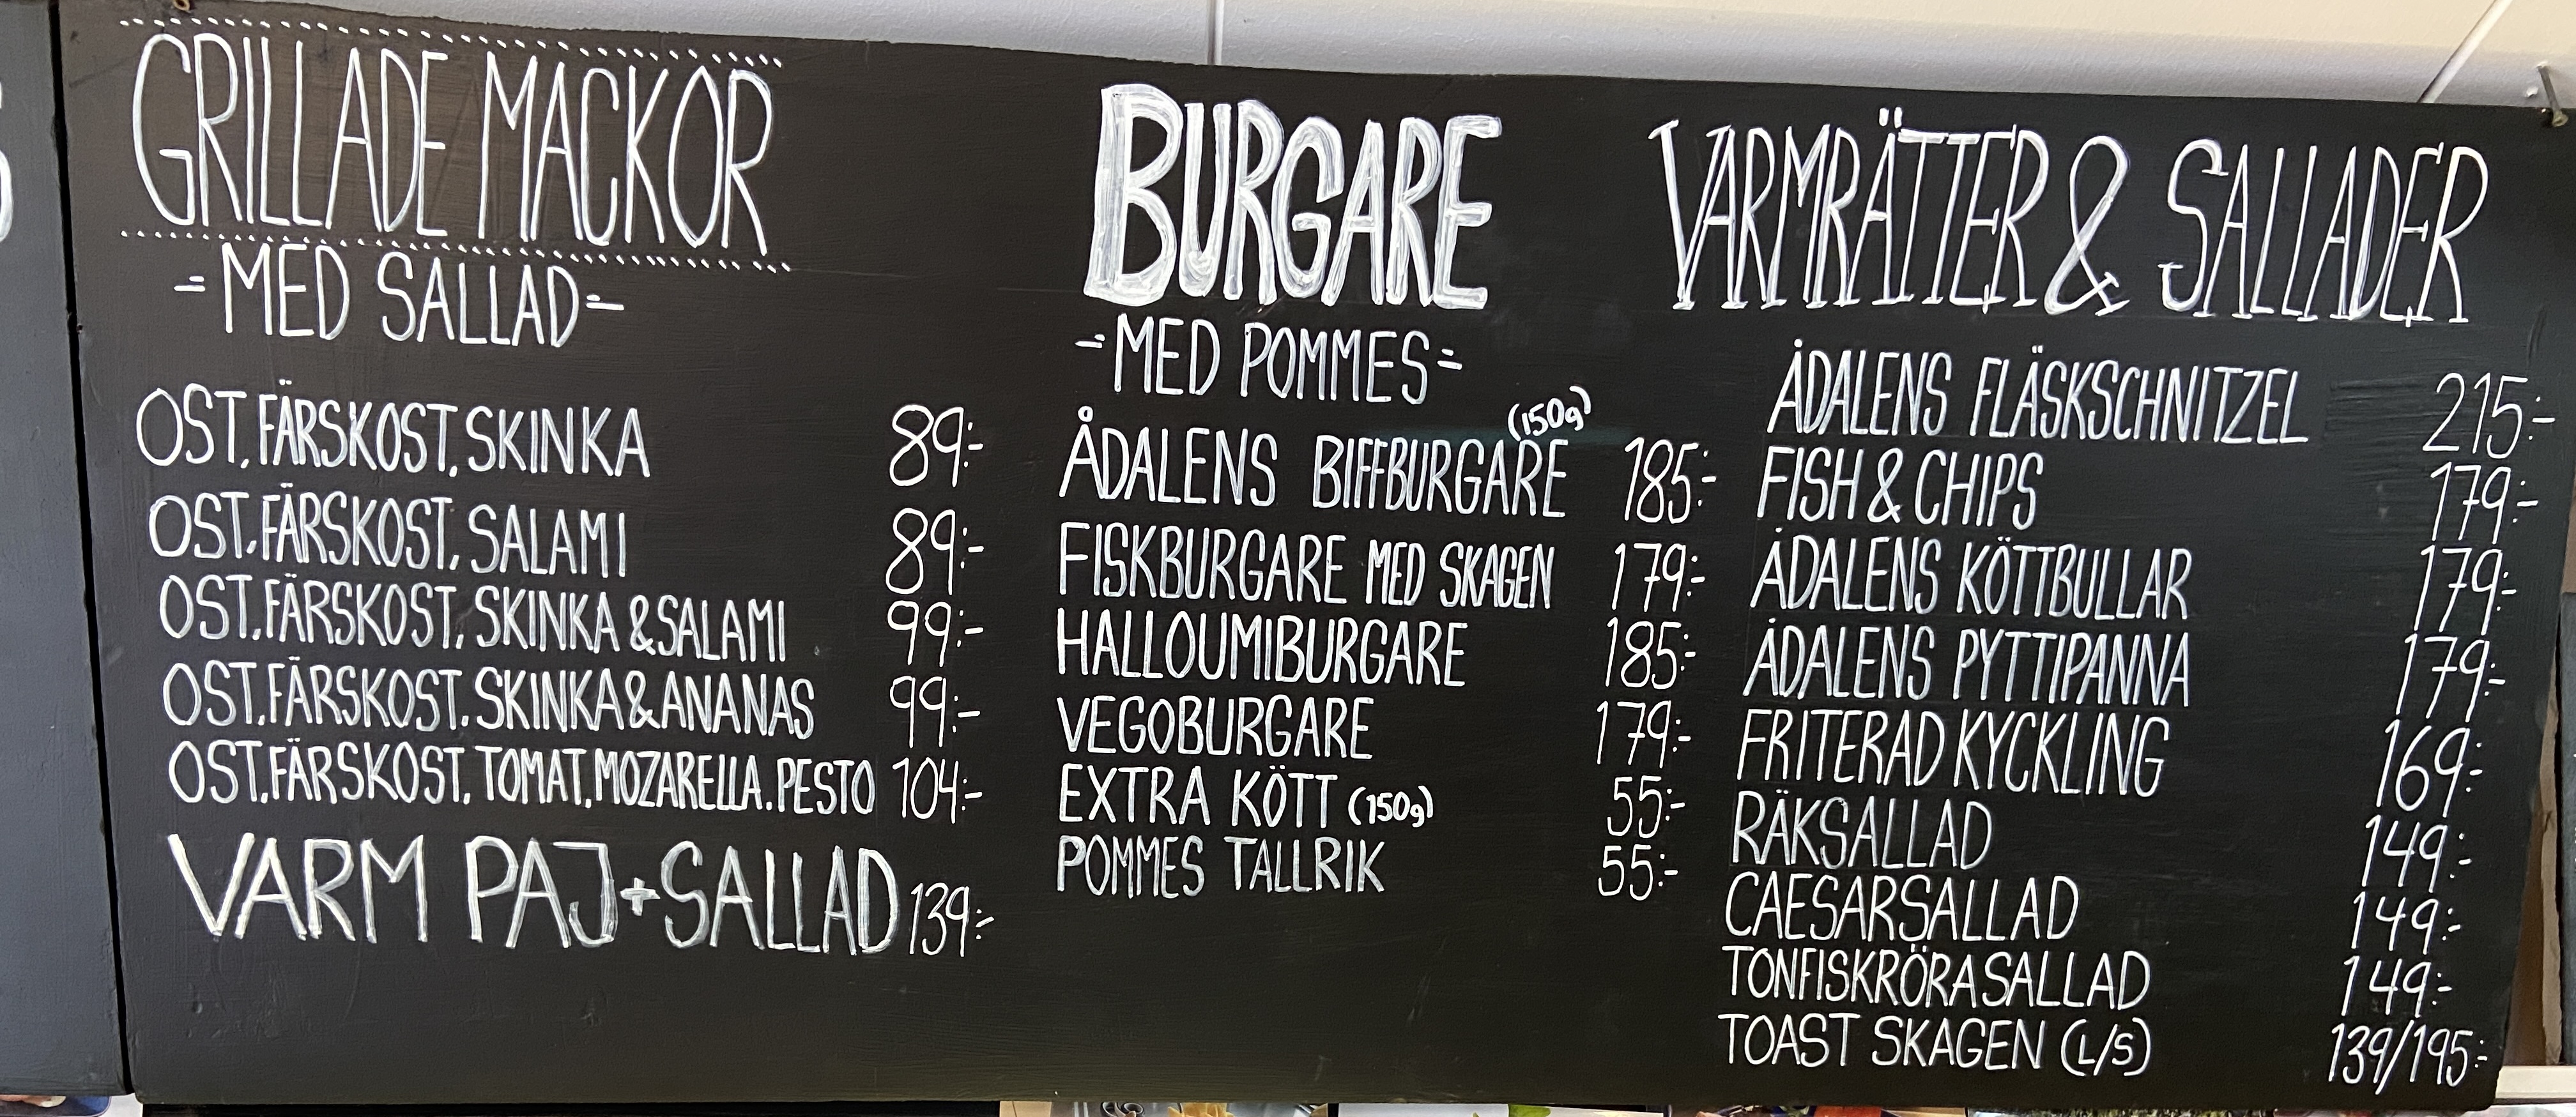 GRILLADE MACKOR
-MED SALLAD-
OST, FÄRSKOST, SKINKA 89:-
OST, FÄRSKOST, SALAMI 89:-
OST, FÄRSKOST, SKINKA & SALAMI 99:-
OST, FÄRSKOST, SKINKA & ANANAS 99:-
OST, FÄRSKOST, TOMAT, MOZARELLA, PESTO 104:-
VARM PAJ + SALLAD 139:-
BURGARE
-MED POMMES-
ÅDALENS BIFFBURGARE (150g) 185:-
FISKBURGARE MED SKAGEN 179:-
HALLOUMIBURGARE 185:-
VEGOBURGARE 179:-
EXTRA KÖTT (150g) 55:-
POMMES TALLRIK 55:-
VARMRÄTTER & SALLADER
ÅDALENS FLÄSKSCHNITZEL 215:-
FISH & CHIPS 179:-
ÅDALENS KÖTTBULLAR 179:-
ÅDALENS PYTTIPANNA 179:-
FRITERAD KYCKLING 169:-
RÄKSALLAD 149:-
CAESARSALLAD 149:-
TONFISKRÖRASALLAD 149:-
TOAST SKAGEN (L/S) 139/195:-